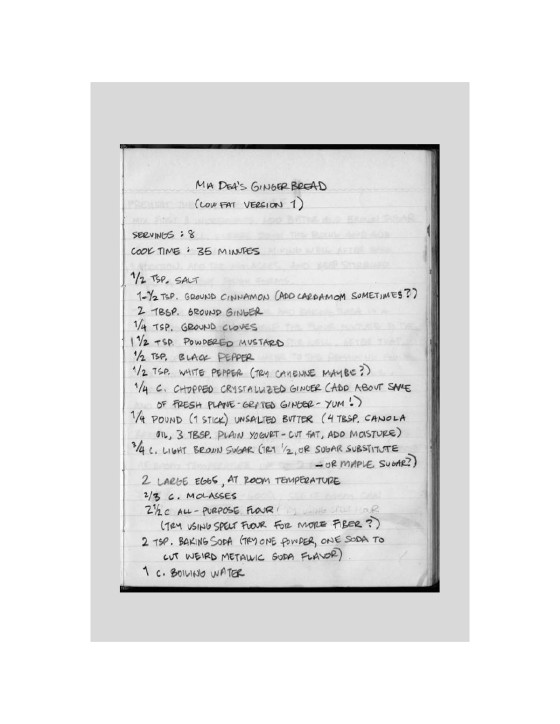 MIA DEA'S GINGERBREAD
(LOW FAT VERSION 1)
SERVINGS : 8
COOK TIME : 35 MINUTES
1/2 TSP. SALT
1-1/2 TSP. GROUND CINNAMON (ADD CARDAMOM SOMETIMES?)
2 TBSP. GROUND GINGER
1/4 TSP. GROUND CLOVES
1 1/2 TSP POWDERED MUSTARD
1/2 TSP. BLACK PEPPER
1/2 TSP. WHITE PEPPER (TRY CAYENNE MAYBE?)
1/4 C. CHOPPED CRYSTALLIZED GINGER (ADD ABOUT SAME
OF FRESH PLANE-GRATED GINGER - YUM!)
1/4 POUND (1 STICK) UNSALTED BUTTER (4 TBSP. CANOLA
OIL, 3 TBSP. PLAIN YOGURT - CUT FAT, ADD MOISTURE)
3/4 C. LIGHT BROWN SUGAR (TRY 1/2, OR SUGAR SUBSTITUTE
- OR MAPLE SUGAR?)
2 LARGE EGGS, AT ROOM TEMPERATURE
2/3 C. MOLASSES
2 1/2 C ALL-PURPOSE FLOUR
(TRY USING SPELT FLOUR FOR MORE FIBER?)
2 TSP. BAKING SODA (TRY ONE POWDER, ONE SODA TO
CUT WEIRD METALLIC SODA FLAVOR)
1 C. BOILING WATER